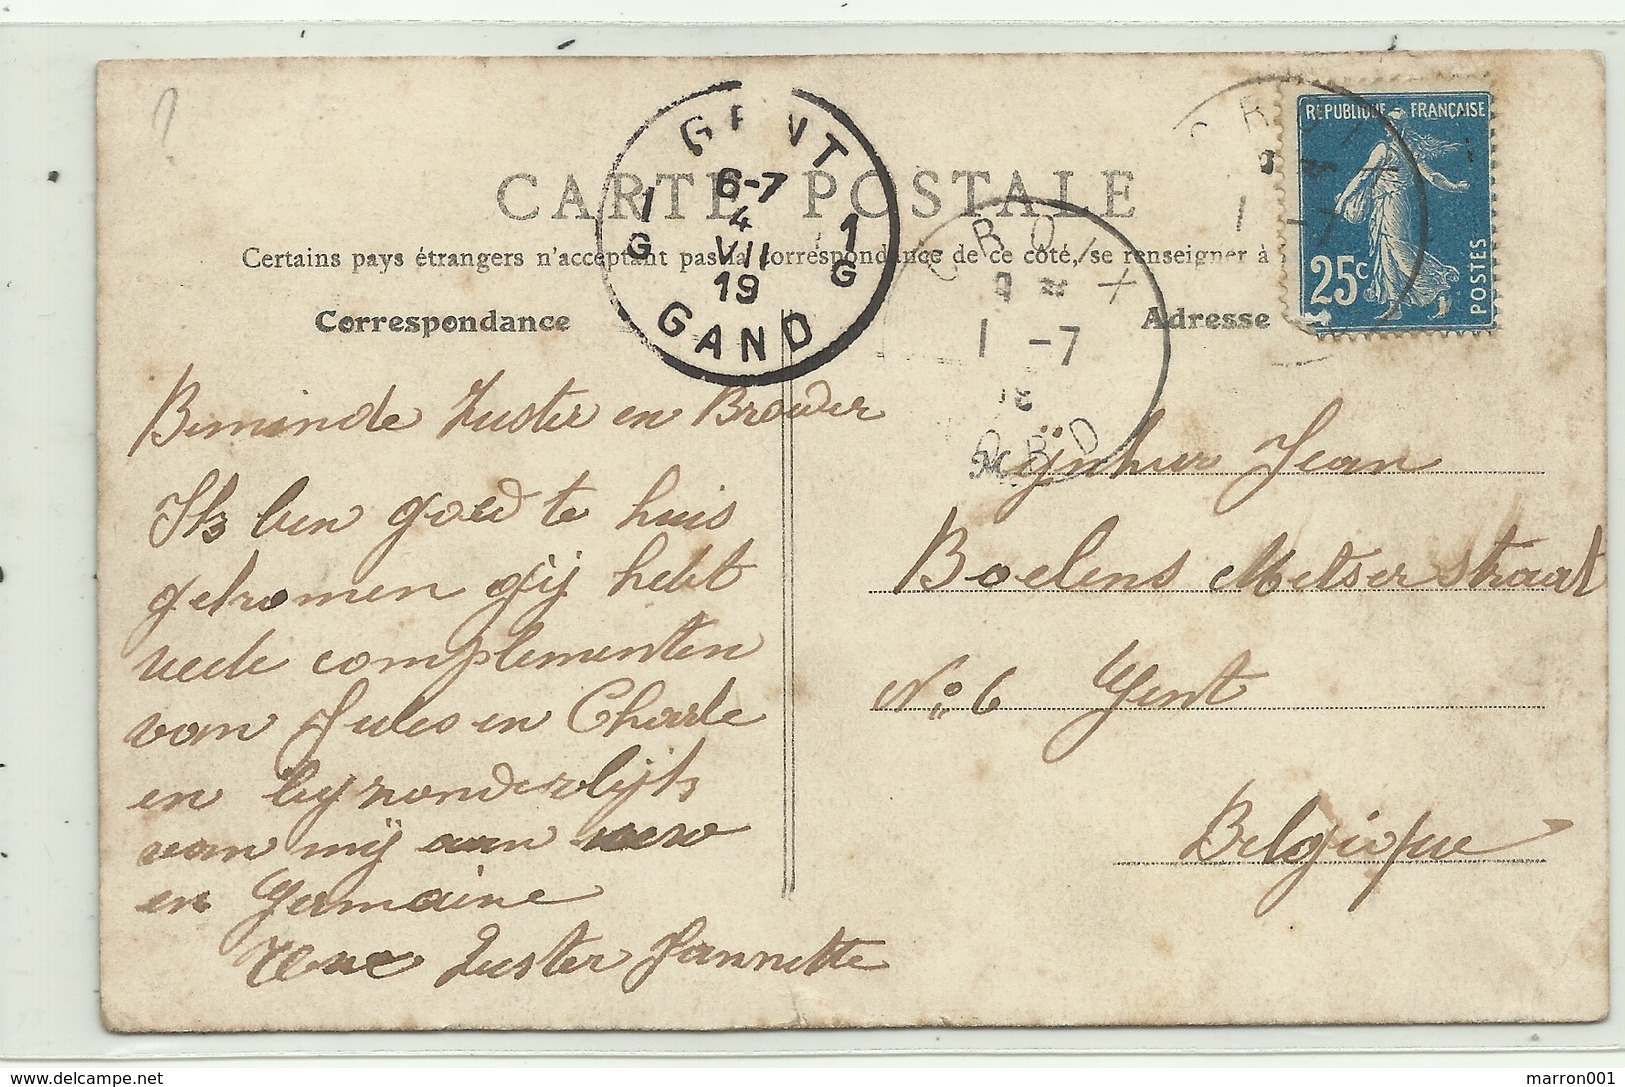 CARTE POSTALE
Certains pays étrangers n'acceptant pas la correspondance de ce côté, se renseigner à
Correspondance
Adresse
GENT
6-7
4
VII
19
1 G
1 G
GAND
CROIX
1 -7
NORD
REPUBLIQUE FRANÇAISE
25c
POSTES
Beminde Zuster en Broeder
Ik ben goed te huis
gekomen gij hebt
veele complementen
van Jules en Charle
en bezonderlijk
van mij aan uw
en Germaine
Uwe Zuster Jannette
Mÿnheer Jean
Boelens Metserstraat
No 6 Gent
Belgique
marron001